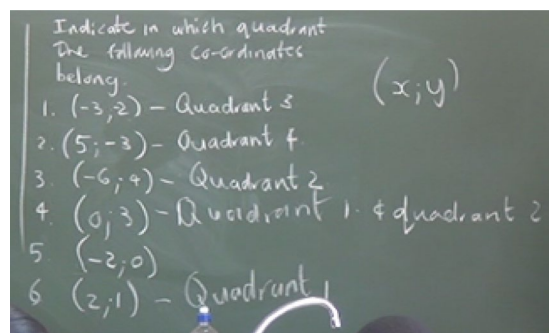 Indicate in which quadrant
The following co-ordinates
belong.
(x;y)
1. (-3;-2) - Quadrant 3
2. (5;-3) - Quadrant 4
3. (-6;4) - Quadrant 2
4. (0;3) - Quadrant 1. & quadrant 2
5 (-2;0)
6 (2;1) - Quadrant 1